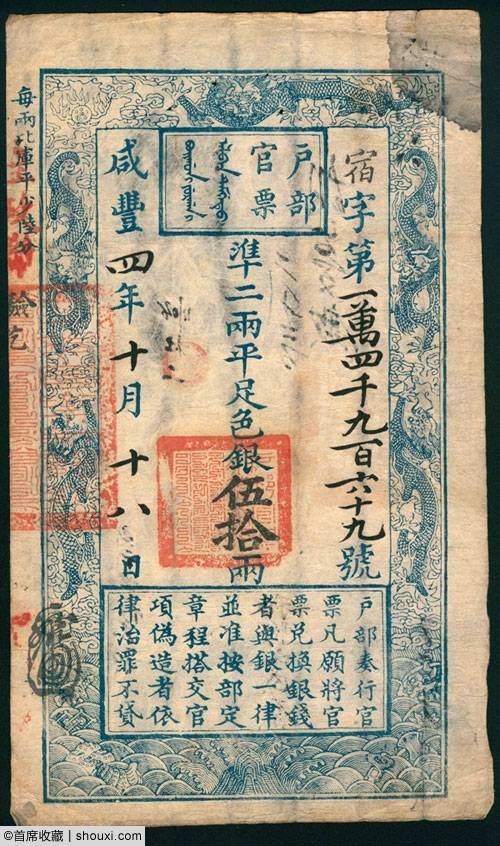 户部
官票
宿字第一萬四千九百六十九號
準二兩平足色銀伍拾兩
咸豐四年十月十八日
户部奏行官
票凡願將官
票兑換銀錢
者與銀一律
並准按部定
章程搭交官
項偽造者依
律治罪不貸
每兩比庫平少陸分
驗訖
©首席收藏 | shouxi.com